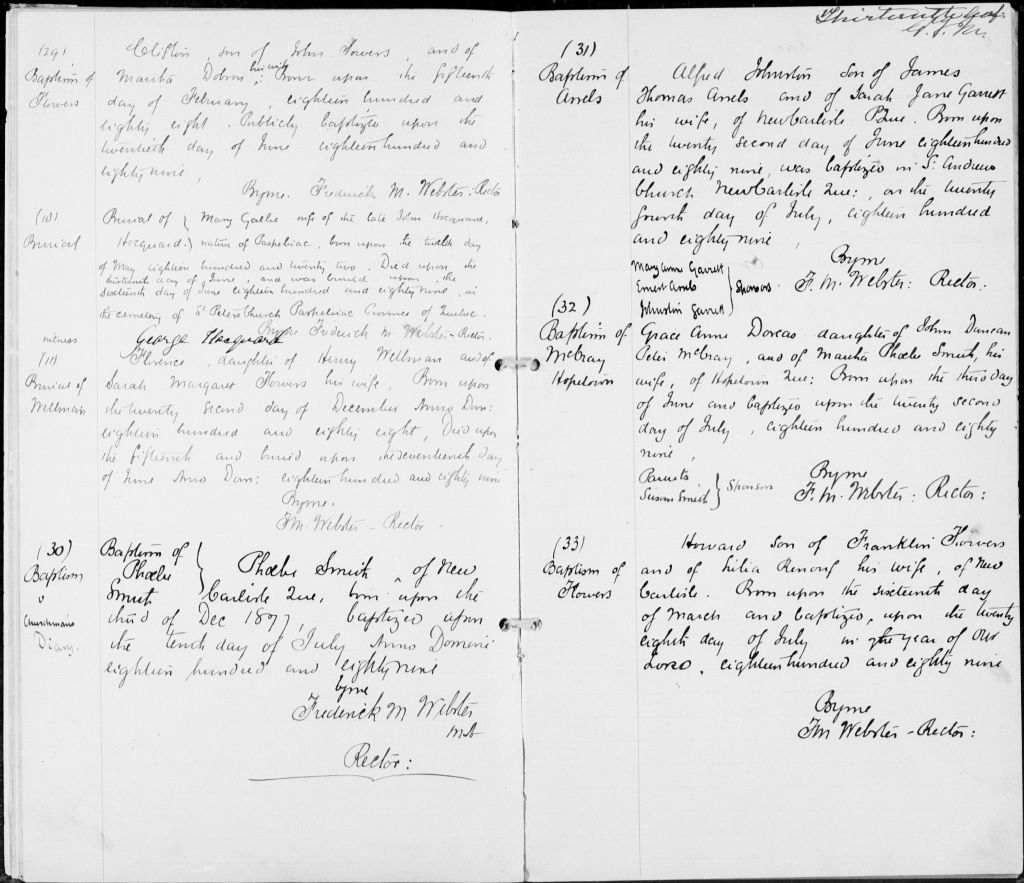 (29)
Baptism of
Flowers
Clifton, son of John Flowers, and of
Martha Dobson his wife. Born upon the fifteenth
day of February, eighteen hundred and
eighty eight. Publicly baptized upon the
twentieth day of June eighteen hundred and
eighty nine,
By me. Frederick M. Webster - Rector
(10)
Burial
Burial of } Mary Gallie wife of the late John Hocquard,
Hocquard. } native of Paspebiac, born upon the twelth day
of May eighteen hundred and twenty two. Died upon the
thirteenth day of June, and was buried upon the
sixteenth day of June eighteen hundred and eighty nine, in
the cemetery of St Peters Church Paspebiac Province of Quebec.
By me Frederick M Webster - Rector.
witness
George Hocquard
(11)
Burial of
Wellman
Florence, daughter of Henry Wellman and of
Sarah Margaret Flowers his wife, Born upon
the twenty second day of December Anno Dom:
eighteen hundred and eighty eight, Died upon
the fifteenth and buried upon the seventeenth day
of June Anno Dom: eighteen hundred and eighty nine
By me.
F.M. Webster - Rector -
(30)
Baptism
Churchmans
Diary.
Baptism of
Phoebe
Smith
Phoebe Smith ^ of New
Carlisle Que, born upon the
third of Dec 1877 baptized upon
the tenth day of July Anno Domini
eighteen hundred and eighty nine
by me
Frederick M Webster
M.A
Rector:
Thirteenth leaf.
(31)
Baptism of
Arsels
Alfred Johnston son of James
Thomas Arsels and of Sarah Jane Garrett
his wife, of New Carlisle P Que. Born upon
the twenty second day of June eighteen hundred
and eighty nine, was baptized in St. Andrews
Church New Carlisle Que:, on the twenty
fourth day of July, eighteen hundred
and eighty nine,
By me
F. M. Webster: Rector.
Mary Anne Garrett
Ernest Arsels
Johnston Garrett
} Sponsors.
(32)
Baptism of
McGray
Hopetown
Grace Anne Dorcas daughter of John Duncan
Peter McGray, and of Martha Phoebe Smith, his
wife, of Hopetown Que: Born upon the third day
of June and baptized upon the twenty second
day of July, eighteen hundred and eighty
nine,
Parents
Susan Smith
} Sponsors
By me
F. M. Webster: Rector:
(33)
Baptism of
Flowers
Howard son of Franklin Flowers
and of his wife, of New
Carlisle. Born upon the sixteenth day
of March and baptized, upon the twenty
eighth day of July in the year of our
Lord, eighteen hundred and eighty nine
By me
F M Webster - Rector: